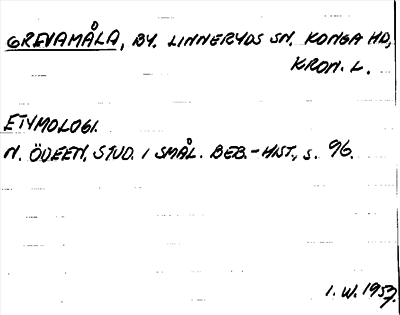 GREVAMÅLA, BY. LINNERYDS SN. KONGA HD,
KRON. L.
ETYMOLOGI.
N. ÖDEEN, STUD. I SMÅL. BEB.-HIST., s. 96.
I. W. 1957.